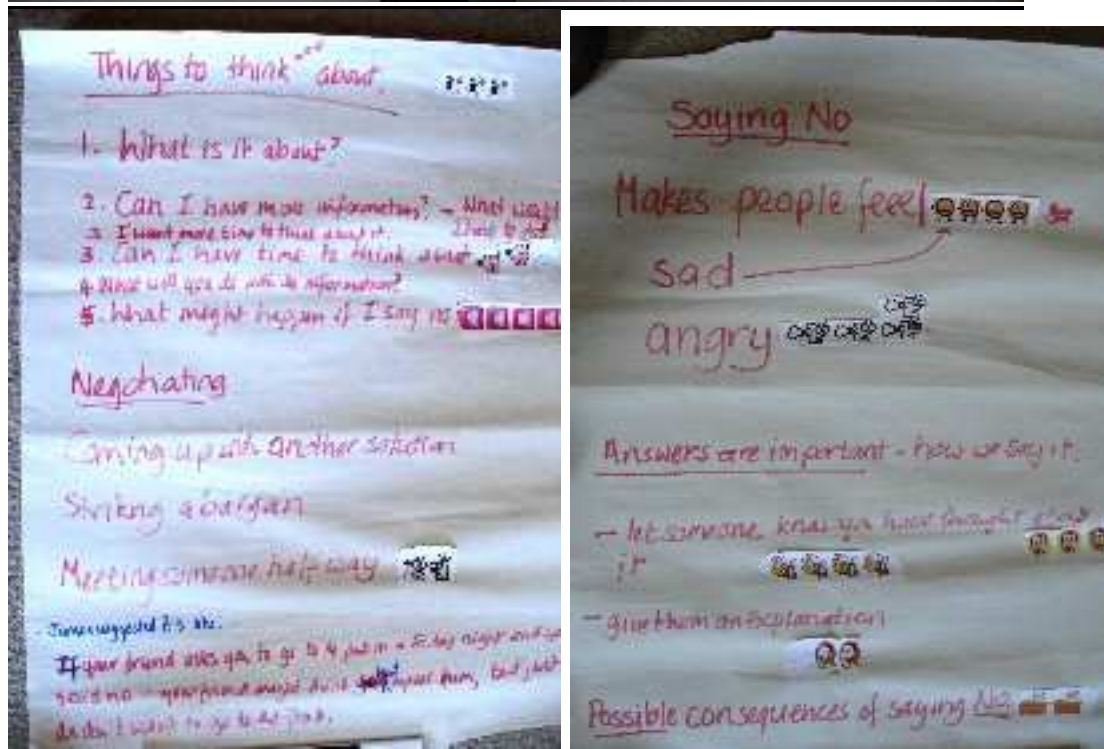 Things to think about.
1. What is it about?
2. Can I have more information? - What
I want more time to think about it.
3. Can I have time to think about
4. What will you do with information?
5. What might happen if I say no
Negotiating
Coming up with another solution
Striking a bargain
Meeting someone half way
James suggested it's like.
If your friend asks you to go to pub on a night and you
said no - your friend might think upset him, but just
don't want to go to the pub.
Saying No
Makes people feel
sad
angry
Answers are important - how we say it.
- let someone know you have thought about
it
- give them an explanation
Possible consequences of saying No